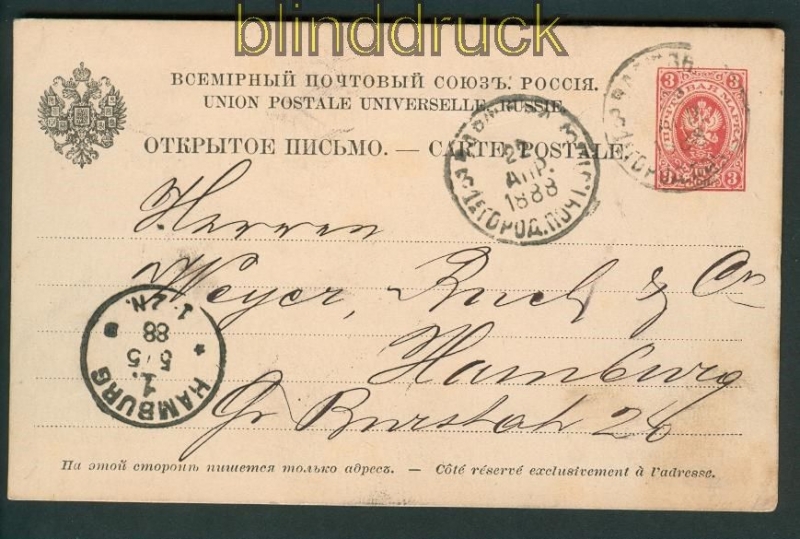 blinddruck
ВСЕМІРНЫЙ ПОЧТОВЫЙ СОЮЗЪ. РОССІЯ.
UNION POSTALE UNIVERSELLE. RUSSIE.
ОТКРЫТОЕ ПИСЬМО. — CARTE POSTALE.
3 3
ПОЧТОВАЯ МАРКА
3 3
22
АПР.
1888
ГОРОД. ПОЧТ.
Herren
Weyer, Ruch & Co
Hamburg
Gr Burstah 26
HAMBURG
1.
5/5
88
1-2N.
На этой сторонѣ пишется только адресъ. — Côté réservé exclusivement à l'adresse.